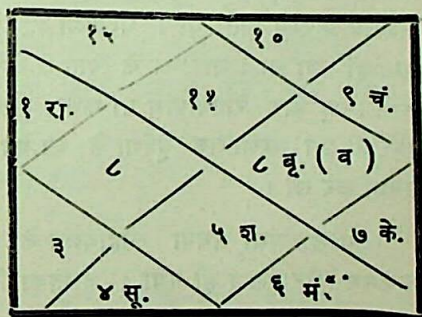 १२ १०
१ रा. ११ ९ चं.
८ ८ बृ. ( व )
३ ५ श. ७ के.
४ सू. ६ मं.